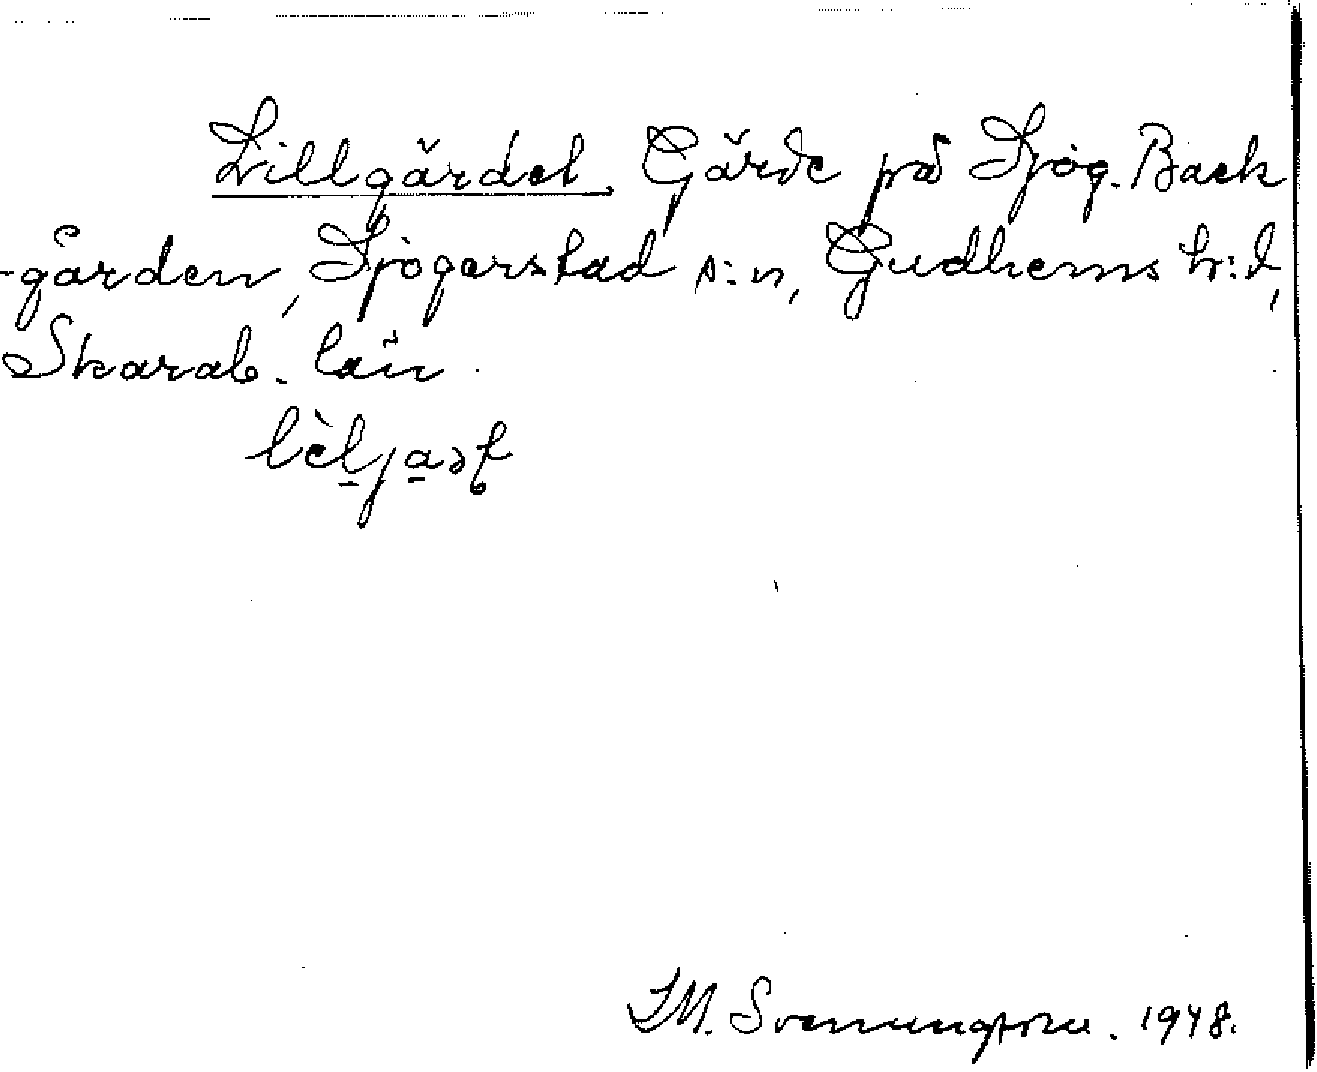 Lillgärdet. Gärde på Sjög. Back
-gården, Sjögerstad s:n, Gudhems h:d,
Skarab. län
S.M. Svenningsson. 1948.